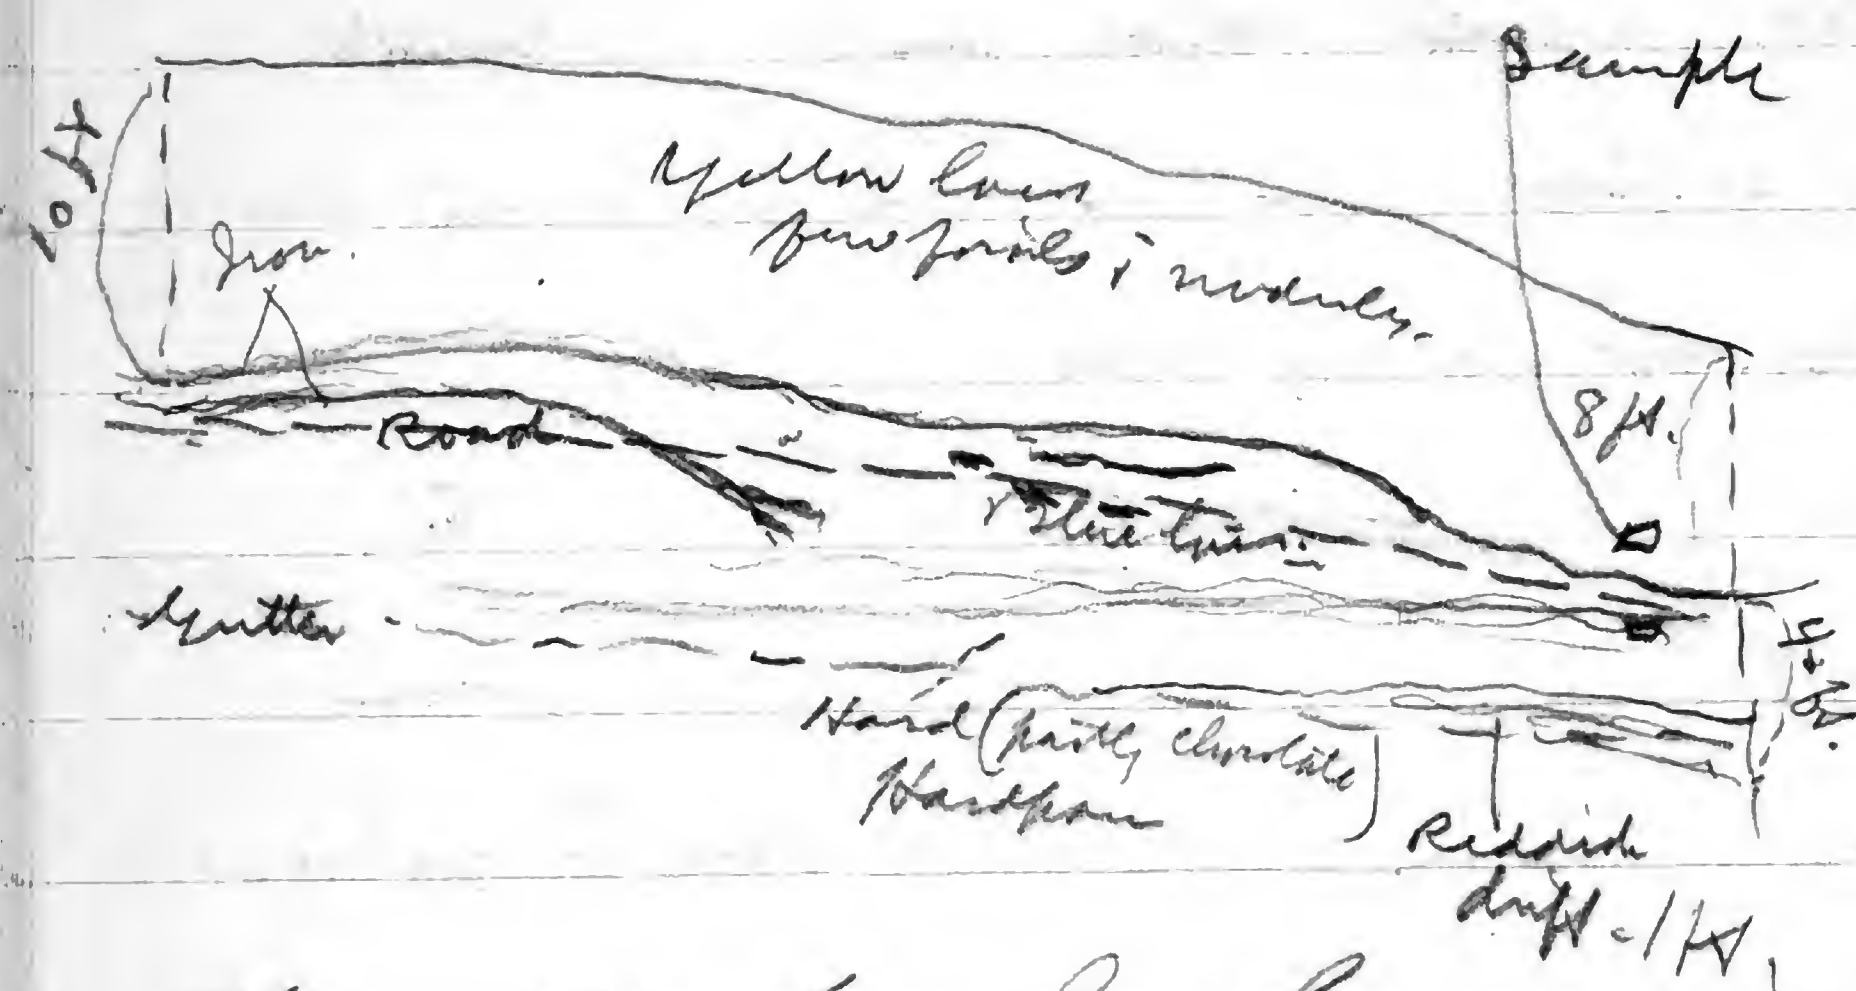 Sample
10 ft
Yellow loess
few fossils & nodules.
Iron.
8 ft.
Road
Blue loess.
Gutter
Hard (partly chocolate)
Hardpan
Reddish
drift - 1 ft.